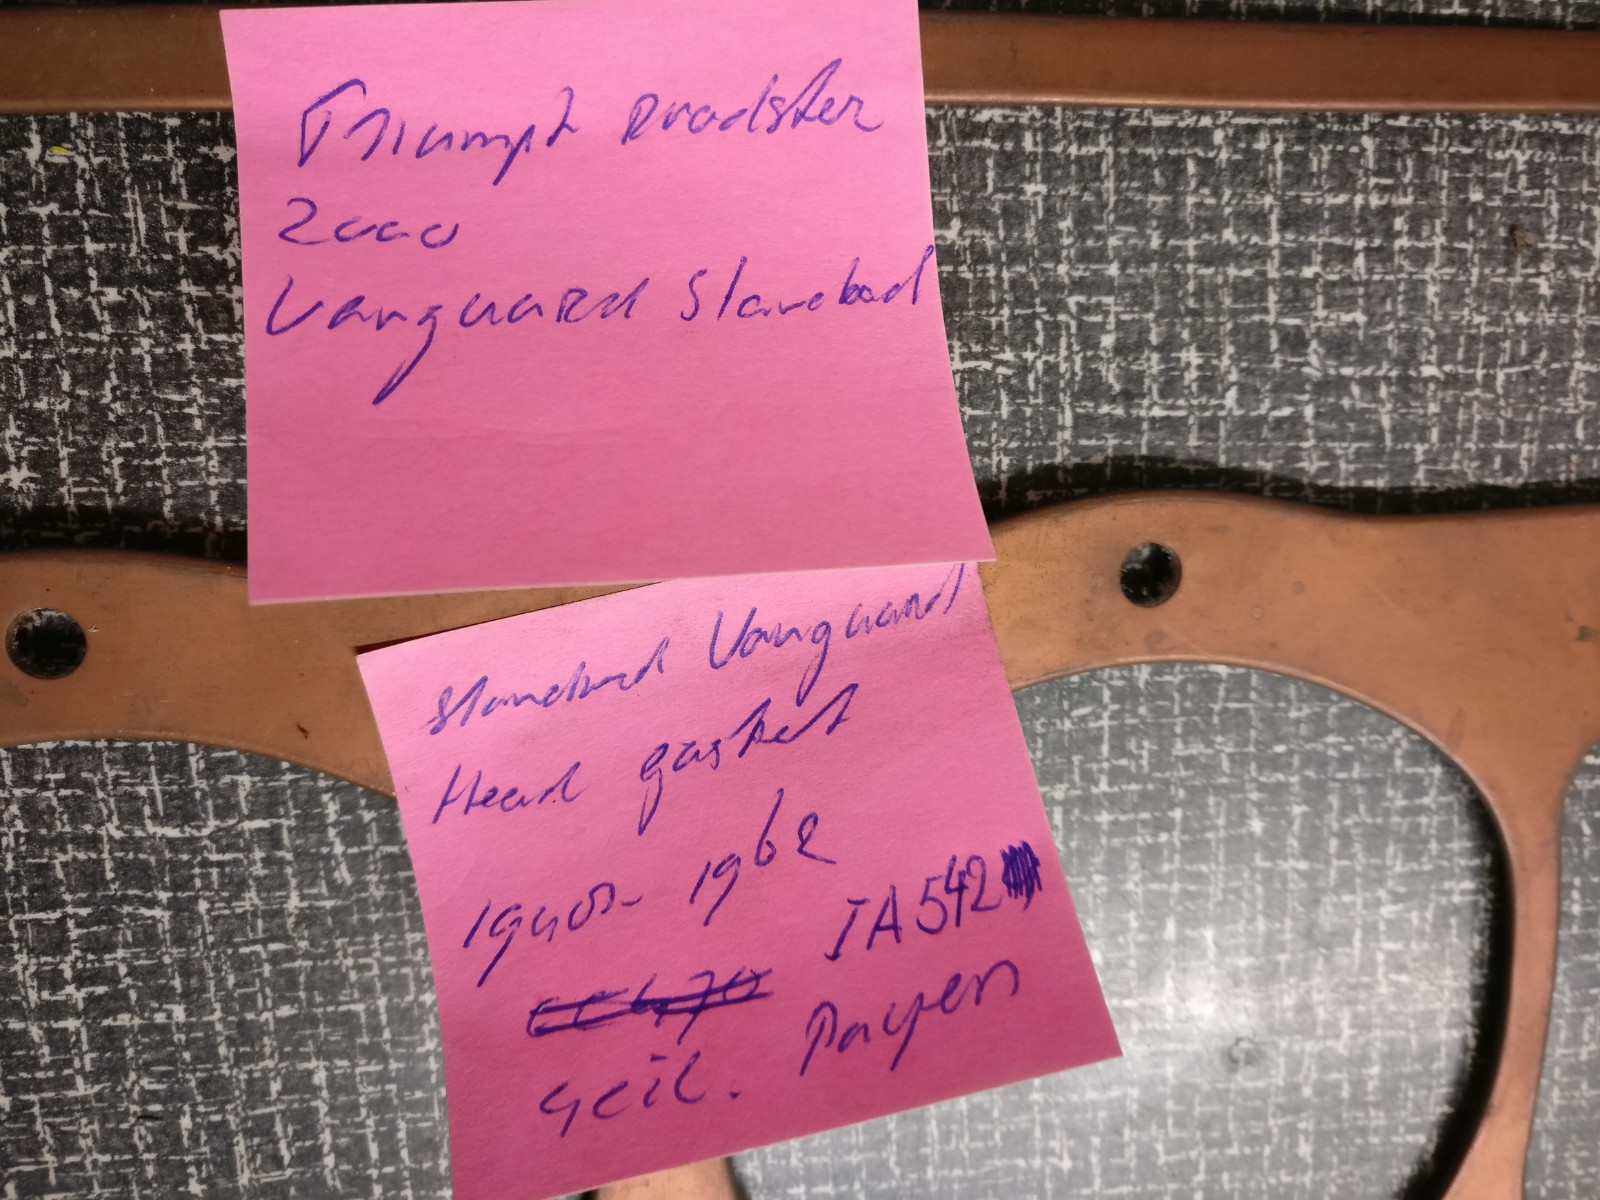 Triumph Roadster
2000
Vanguard Standard
Standard Vanguard
Head gasket
1962
JA542
4cil. Payen